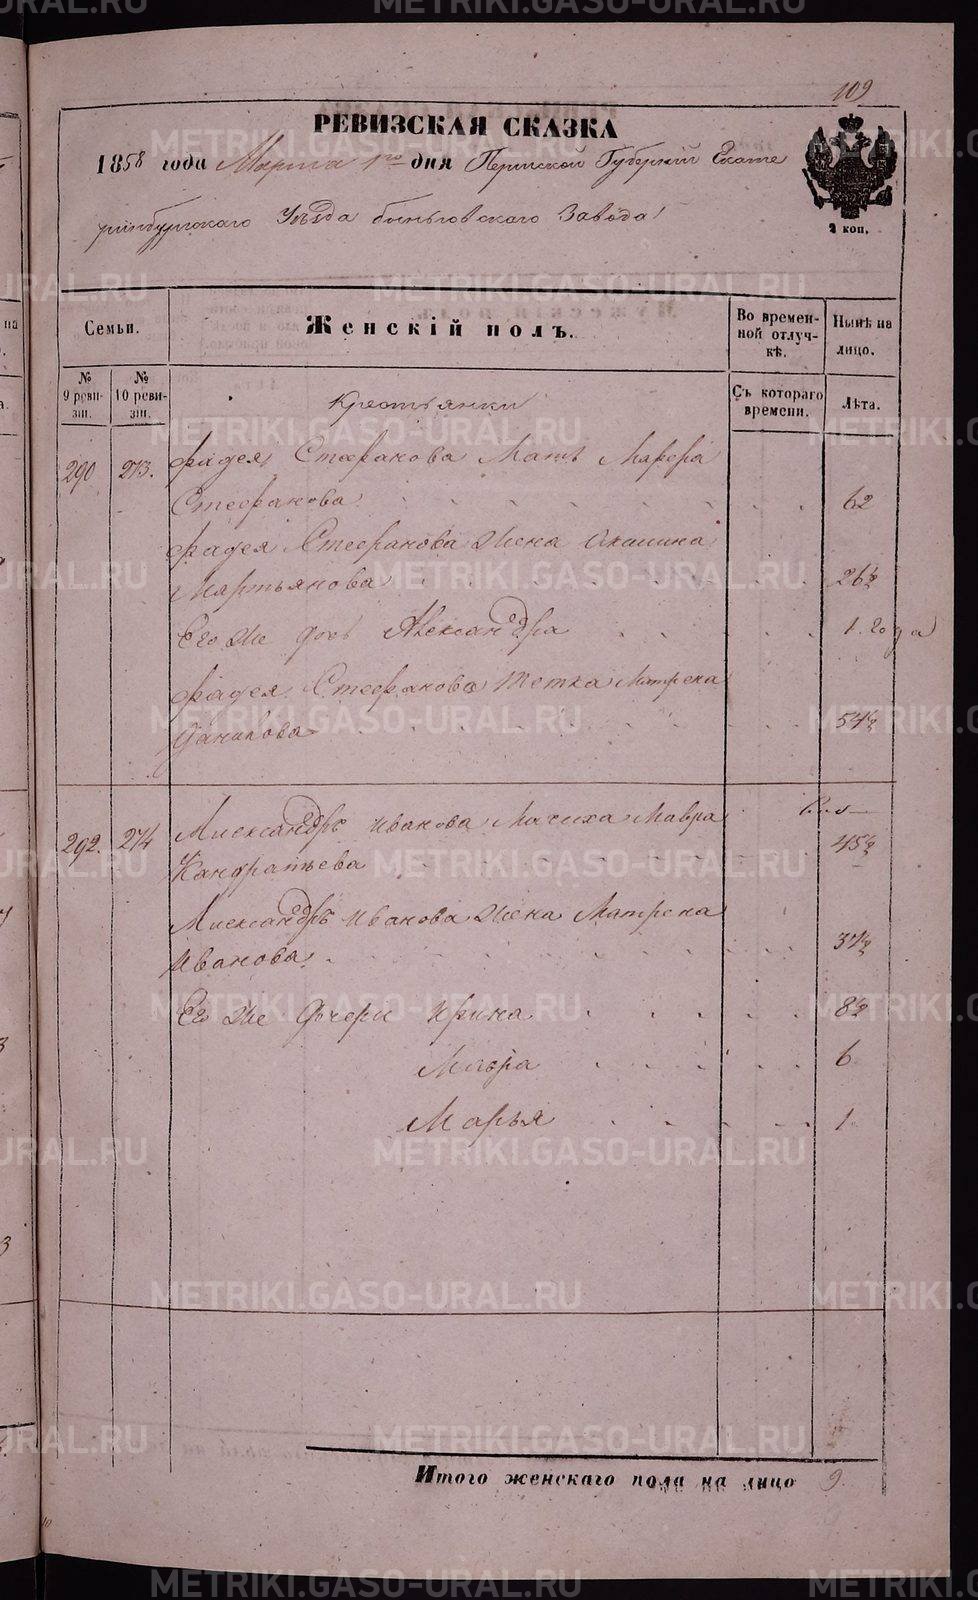 109
РЕВИЗСКАЯ СКАЗКА
1858 года Марта 1го дня Пермской Губернiи Екате
ринбургскаго Уѣзда быньговскаго Завода
2 коп.
Семьи.
Женскiй полъ.
Во времен-
ной отлуч-
кѣ.
Нынѣ на
лицо.
№
9 реви-
зiи.
№
10 реви-
зiи.
Съ котораго
времени.
Лѣта.
Крестьянки
290 273. Фадея Стефанова Мать Марфа
Стефанова 62
Фадея Стефанова Жена Акилина
Мартьянова 26½
Его же дочь Александра 1. года
Фадея Стефанова тетка Матрена
Данилова 54½
292. 274 Александръ Иванова Мачиха Мавра
Кандратьева 45½
Александръ Иванова Жена Матрена
Иванова 37½
Его же Дочери Ирина 8½
Мавра 6
Марья 1
Итого женскаго пола на лицо 9.
METRIKI.GASO-URAL.RU